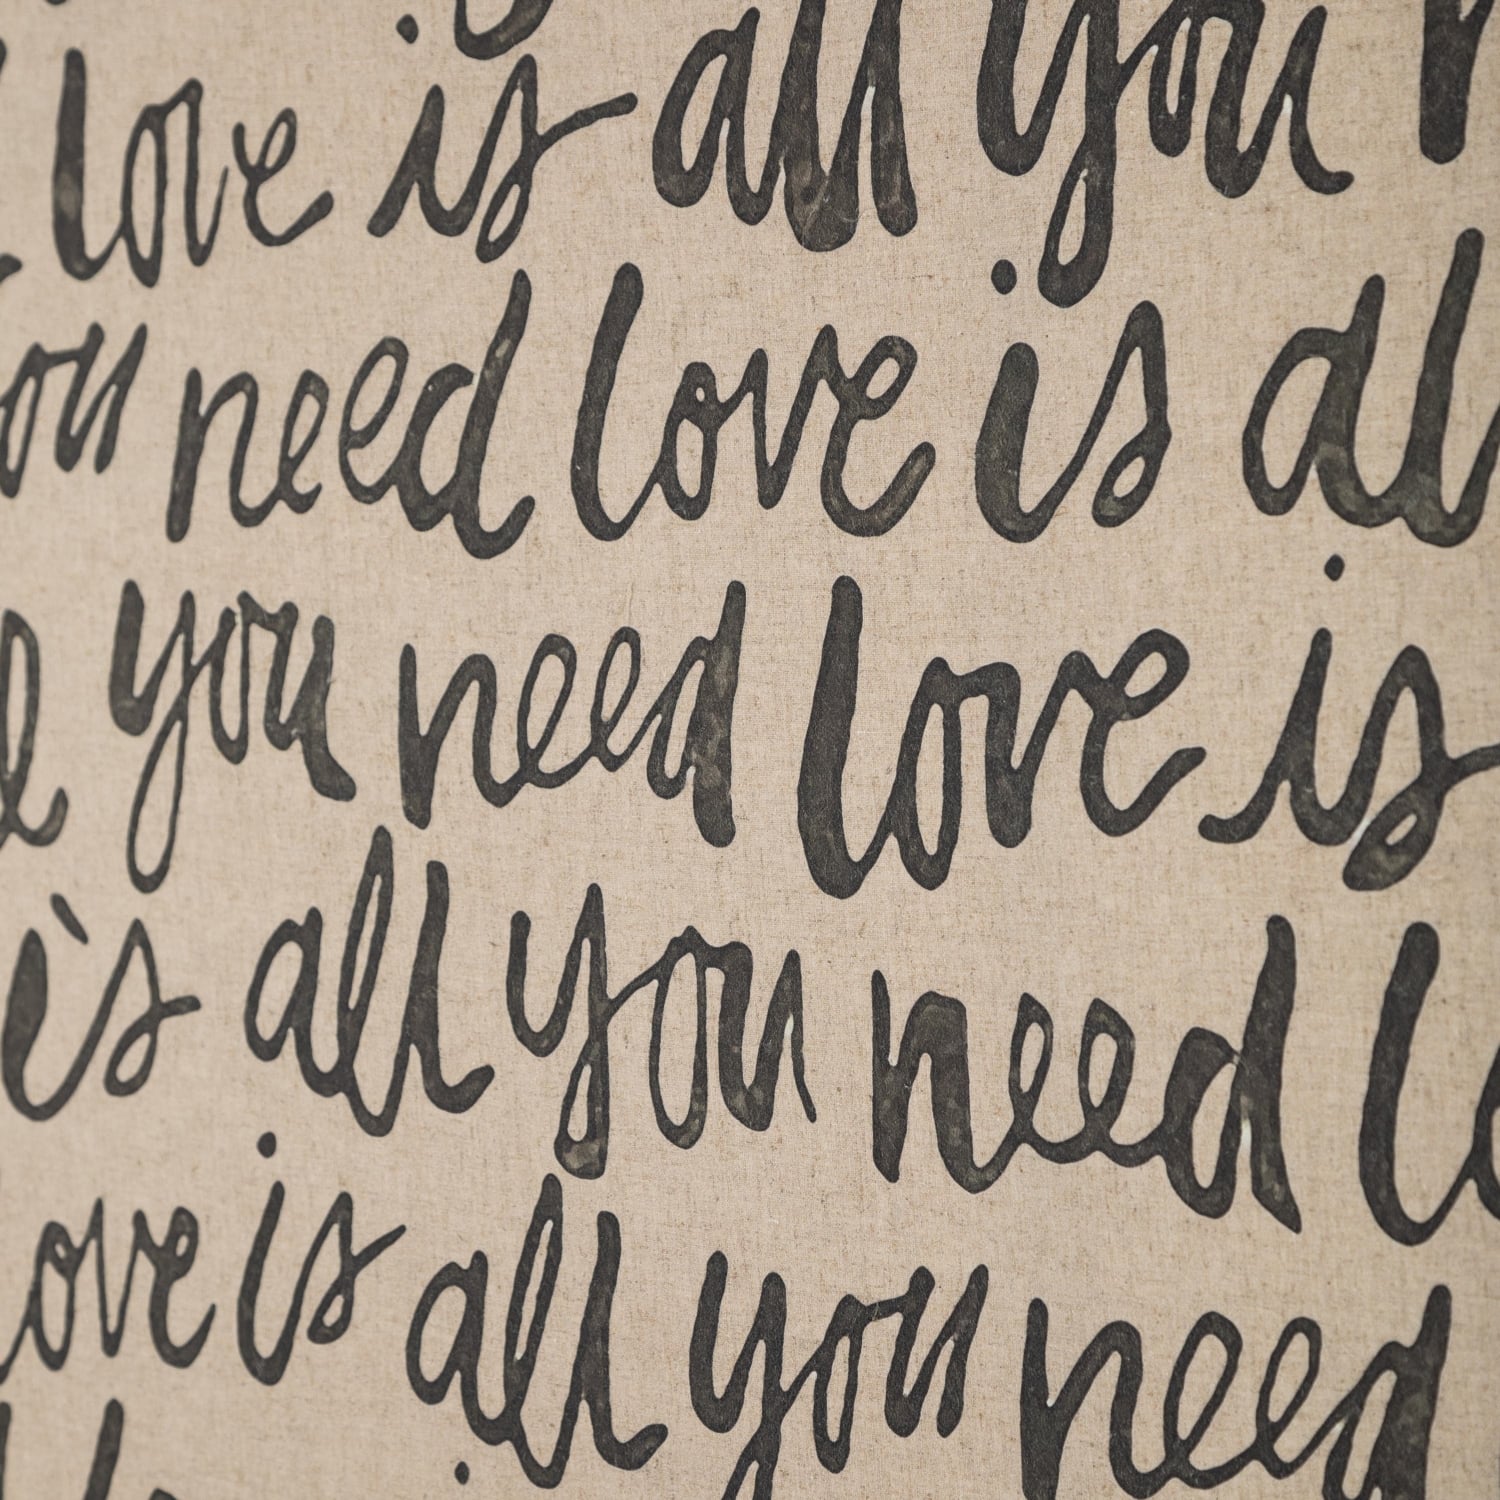 love is all you
you need love is al
you need love is
is all you need lo
love is all you need